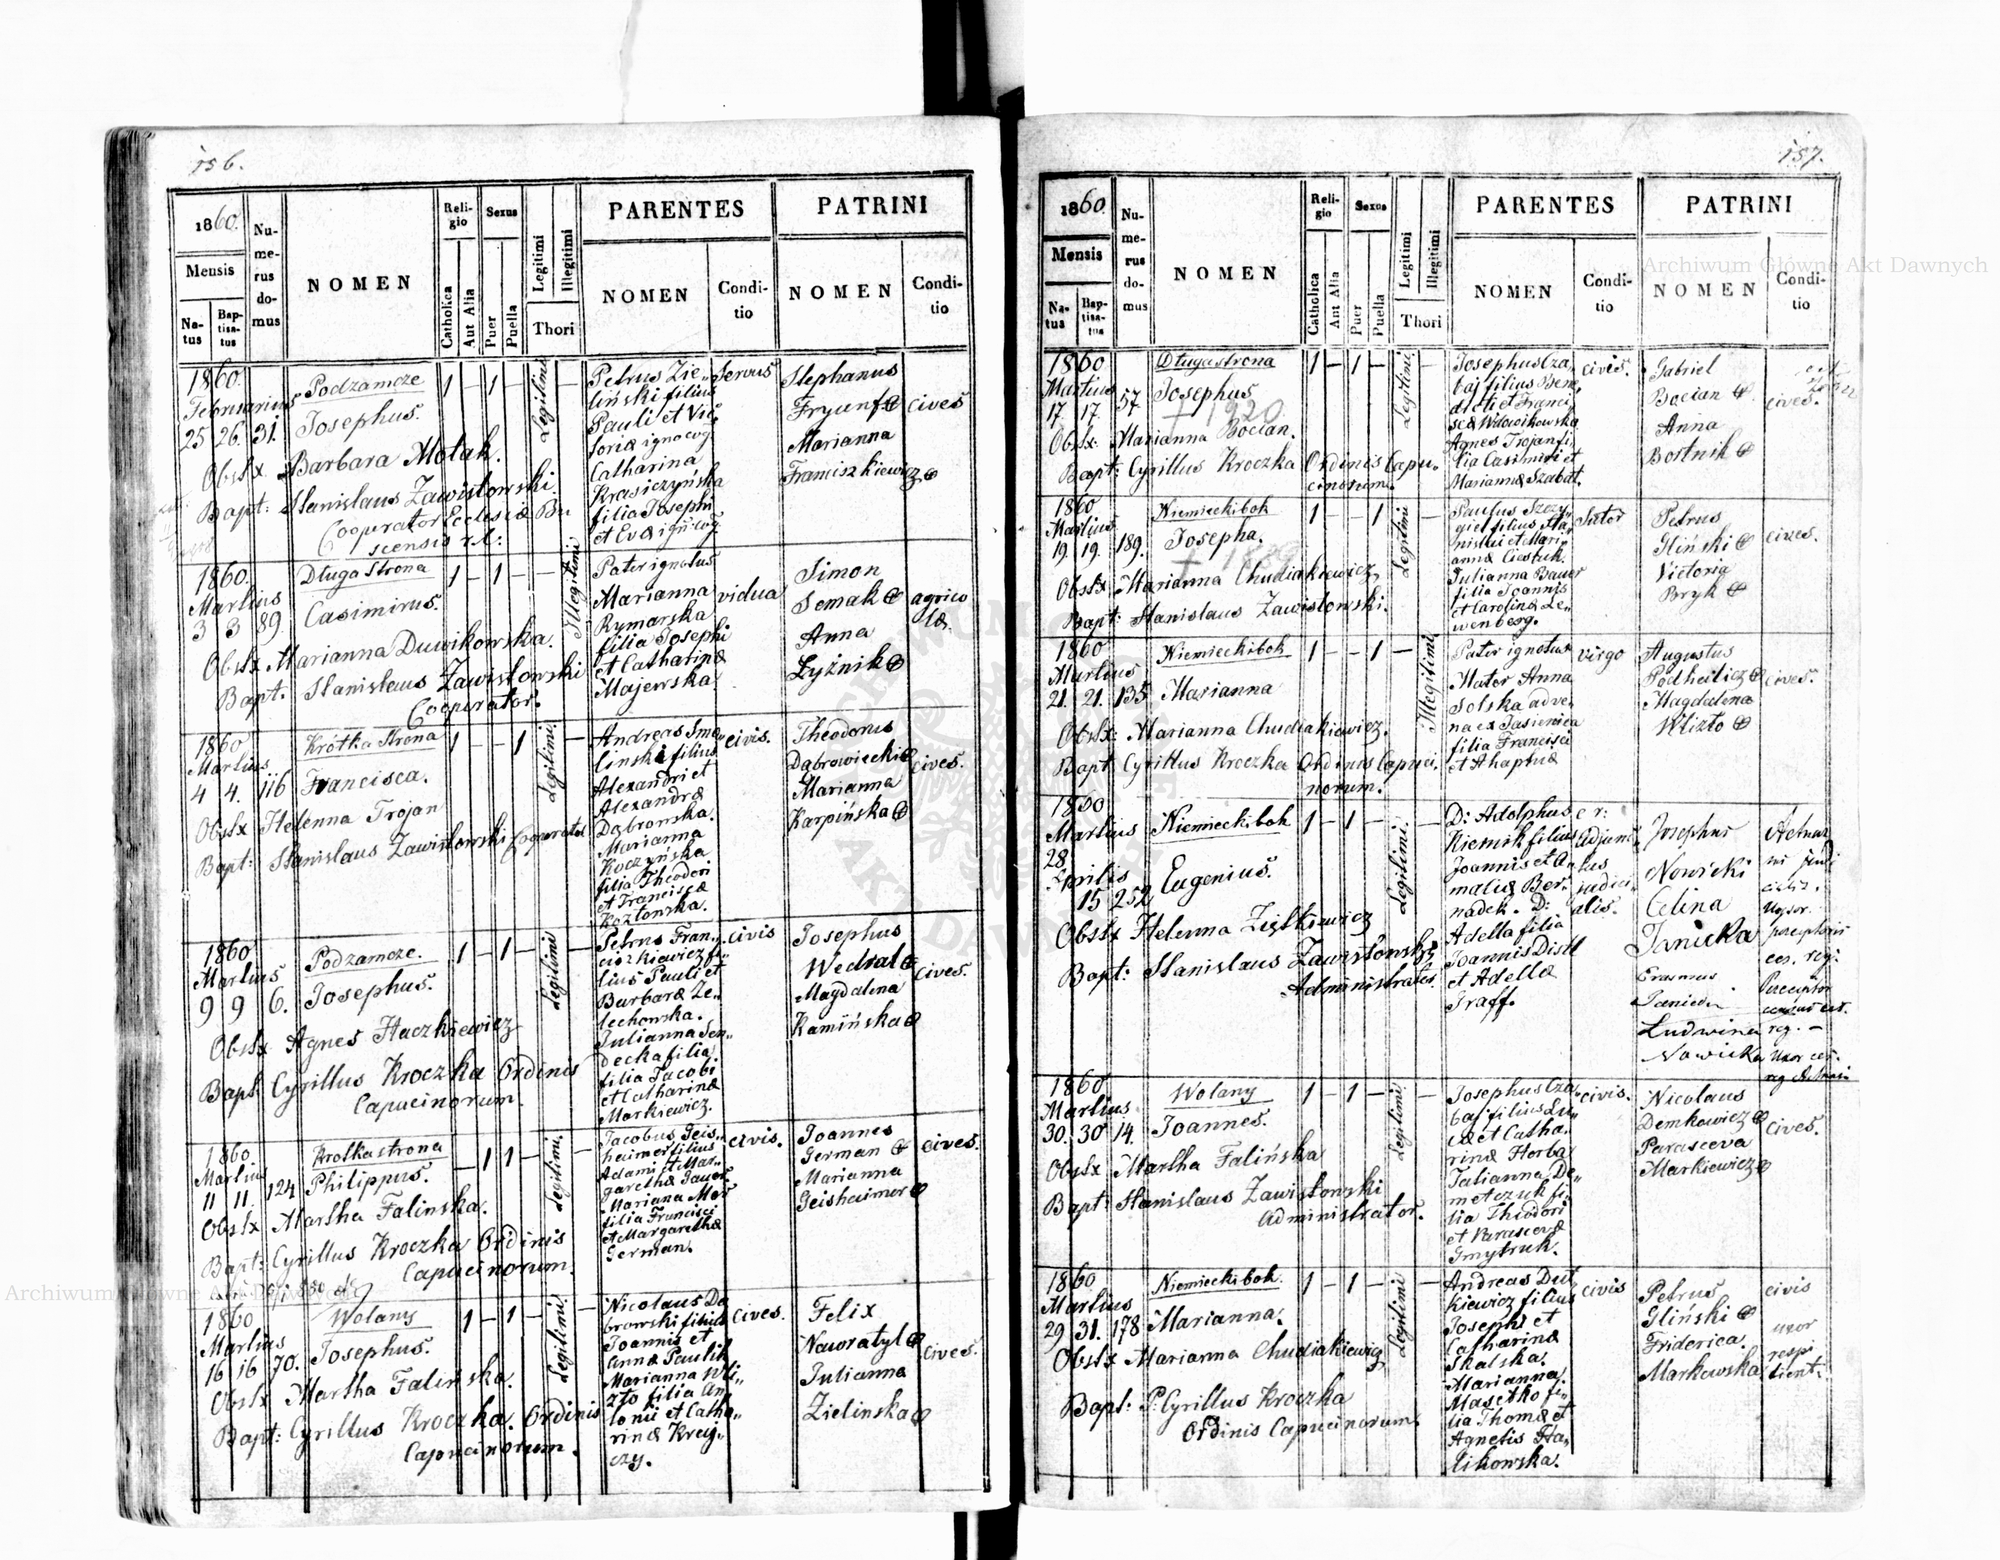 156.
1860.
Mensis
Na-
tus
Bap-
tisa-
tus
Nu-
me-
rus
do-
mus
NOMEN
Reli-
gio
Catholica
Aut Alia
Sexus
Puer
Puella
Legitimi
Illegitimi
Thori
PARENTES
NOMEN
Condi-
tio
PATRINI
NOMEN
Condi-
tio
1860.
Februarius
25 26. 31.
Podzamcze
Josephus.
1 – 1 –
Legitimi
Obstx Barbara Motak.
Bapt: Stanislaus Zawistowski
Cooperator Ecclesiæ Bu
scensis r.l:
Petrus Zie-
liński filius
Pauli et Vic
toriæ ignocog
Catharina
Krasiczyńska
filia Josephi
et Evæ ign cog.
servus
Stephanus
Fryunf
Marianna
Franciszkiewicz
cives
1860.
Martius
3 3 89.
Długa Strona
Casimirus.
1 – 1 –
Illegitimi
Obstx. Marianna Duwikowska.
Bapt. Stanislaus Zawistowski
Cooperator.
Pater ignotus
Marianna
Rymarska
filia Josephi
et Catharinæ
Majewska
vidua
Simon
Semak
Anna
Łyżnik
agrico
læ.
1860
Martius
4 4. 116
Krótka Strona
Francisca.
1 – – 1
Legitimi.
Obstx Helenna Trojan
Bapt: Stanislaus Zawistowski Cooperator
Andreas Smo
linski filius
Alexandri et
Alexandræ
Dąbrowska.
Marianna
Koczyńska
filia Theodori
et Franciscæ
Kozłowska.
civis.
Theodorus
Dąbrowiecki
Marianna
Karpińska
cives.
1860
Martius
9 9 6.
Podzamcze.
Josephus.
1 – 1 –
Legitimi
Obstx Agnes Haczkiewicz
Bapt Cyrillus Kroczka Ordinis
Capucinorum
Petrus Fran-
ciszkiewicz fi-
lius Pauli et
Barbaræ Ze-
lechowska.
Julianna Sen-
decka filia
filia Jacobi
et Catharinæ
Markiewicz.
civis
Josephus
Wedral
Magdalena
Kamińska
cives.
1860.
Martius
11 11. 124
Krotka strona
Philippus.
– 1 1 –
Legitimi.
Obstx Martha Falinska.
Bapt: Cyrillus Kroczka Ordinis
Capucinorum.
Jacobus Geis-
haimer filius
Adami et Mar-
garethæ Gauer
Mariana Mer
filia Francisci
et Margarethæ
German.
civis.
Joannes
German
Marianna
Geishaimer
cives.
1860
Martius
16 16 70.
Wolany
Josephus.
1 – 1 –
Legitimi.
Obstx Martha Falinska.
Bapt: Cyrillus Kroczka. Ordinis
Capucinorum.
Nicolaus Do
browski filius
Joannis et
Annæ Paulik
Marianna Wli-
zto filia An
tonii et Catha-
rinæ Kray-
czy.
cives.
Felix
Nawratyl
Julianna
Zielinska
cives.
157.
1860.
Mensis
Na-
tus
Bap-
tisa-
tus
Nu-
me-
rus
do-
mus
NOMEN
Reli-
gio
Catholica
Aut Alia
Sexus
Puer
Puella
Legitimi
Illegitimi
Thori
PARENTES
NOMEN
Condi-
tio
PATRINI
NOMEN
Condi-
tio
1860
Martius
17 17. 57
Długa strona
Josephus
† 1920
1 – 1 –
Legitimi
Obstx: Marianna Bocian.
Bapt: Cyrillus Kroczka Ordinis Capu-
cinorum.
Josephus Cza
baj filius Bene
dicti et Franci
scæ Wdowikowska
Agnes Trojan fi-
lia Casimiri et
Mariannæ Szabat.
civis.
Gabriel
Bocian
Anna
Bostnik
cives.
1860
Martius
19 19. 189.
Niemiecki bok
Josepha.
† 1889
1 – – 1
Legitimi
Obstx Marianna Chudiakiewicz
Bapt: Stanislaus Zawistowski.
Paulus Szczy-
giel filius Sta-
nislai et Mari-
annæ Ciestuk.
Julianna Bauer
filia Joannis
et Carolinæ Le-
wenberg.
Sutor
Petrus
Gliński
Victoria
Bryk
cives.
1860
Martius
21. 21. 135
Niemiecki bok
Marianna
1 – – 1
Illegitimi
Obstx: Marianna Chudiakiewicz.
Bapt Cyrillus Kroczka Ordinis Capuci-
norum.
Pater ignotus
Mater Anna
Solska adve-
na ex Jasienica
filia Francisci
et Ahaphiæ
virgo
Augustus
Podhalicz
Magdalena
Wlizto
cives.
1860
Martius
28
Aprilis
15 252
Niemiecki bok
Eugenius.
1 – 1 –
Legitimi.
Obstx Helenna Ziętkiewicz
Bapt: Stanislaus Zawistowski
Administrator
D: Adolphus
Kiernik filius
Joannis et A-
maliæ Ber-
nadek. D:
Adella filia
Joannis Distl
et Adellæ
Graff.
c r:
adjunc
tus
judici-
alis.
Josephus
Nowicki
Celina
Janicka
Erasmus
Janicki
Ludwina
Nowicka
Uxor
perceptoris
ces. reg:
Perceptor
reg. –
Uxor ces.
1860
Martius
30. 30 14.
Wolany
Joannes.
1 – 1 –
Legitimi
Obstx Martha Falińska
Bapt: Stanislaus Zawistowski
Administrator.
Josephus Cza-
baj filius Lu-
cæ et Catha-
rinæ Horba
Julianna De-
metczuk fi-
lia Theodori
et Parascevæ
Gmytruk.
civis.
Nicolaus
Demkowicz
Parasceva
Markiewicz
cives.
1860
Martius
29 31. 178
Niemiecki bok.
Marianna.
1 – 1 –
Legitimi
Obstx Marianna Chudiakiewicz
Bapt: P: Cyrillus Kroczka
Ordinis Capucinorum.
Andreas Dut
kiewicz filius
Josephi et
Catharinæ
Skalska.
Marianna
Masetko fi-
lia Thomæ et
Agnetis Ha-
likowska.
civis
Petrus
Gliński
Friderica
Markowska
civis
uxor
respi
cient:
Archiwum Główne Akt Dawnych
Archiwum Główne Akt Dawnych